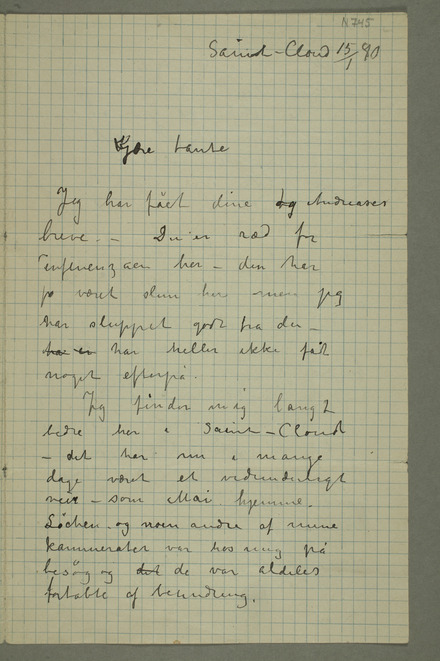 N 745
Saint-Cloud 15/1 90
Kjære tante
Jeg har fået dine og Andreases
breve. – Du er ræd for
influenzaen her – den har
jo været slem her men jeg
har sluppet godt fra den –
har heller ikke fåt
noget efterpå.
Jeg finder mig langt
bedre her i Saint-Cloud
– det har nu i mange
dage været et vidunderligt
veir – som Mai hjemme.
Löchen og noen andre af mine
kammerater var hos mig på
besög og det de var aldeles
fortabte af beundring.